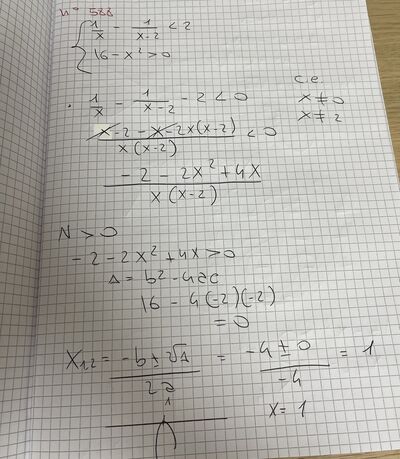 n° 588
{ 1/x - 1/(x-2) < 2
16 - x² > 0
c.e.
• 1/x - 1/(x-2) - 2 < 0 x ≠ 0
x ≠ 2
(x - 2 - x - 2x(x-2))/(x(x-2)) < 0
(-2 - 2x² + 4x)/(x(x-2))
N > 0
-2 - 2x² + 4x > 0
Δ = b² - 4ac
16 - 4(-2)(-2)
= 0
X₁,₂ = (-b ± √Δ)/(2a) = (-4 ± 0)/(-4) = 1
1
x = 1